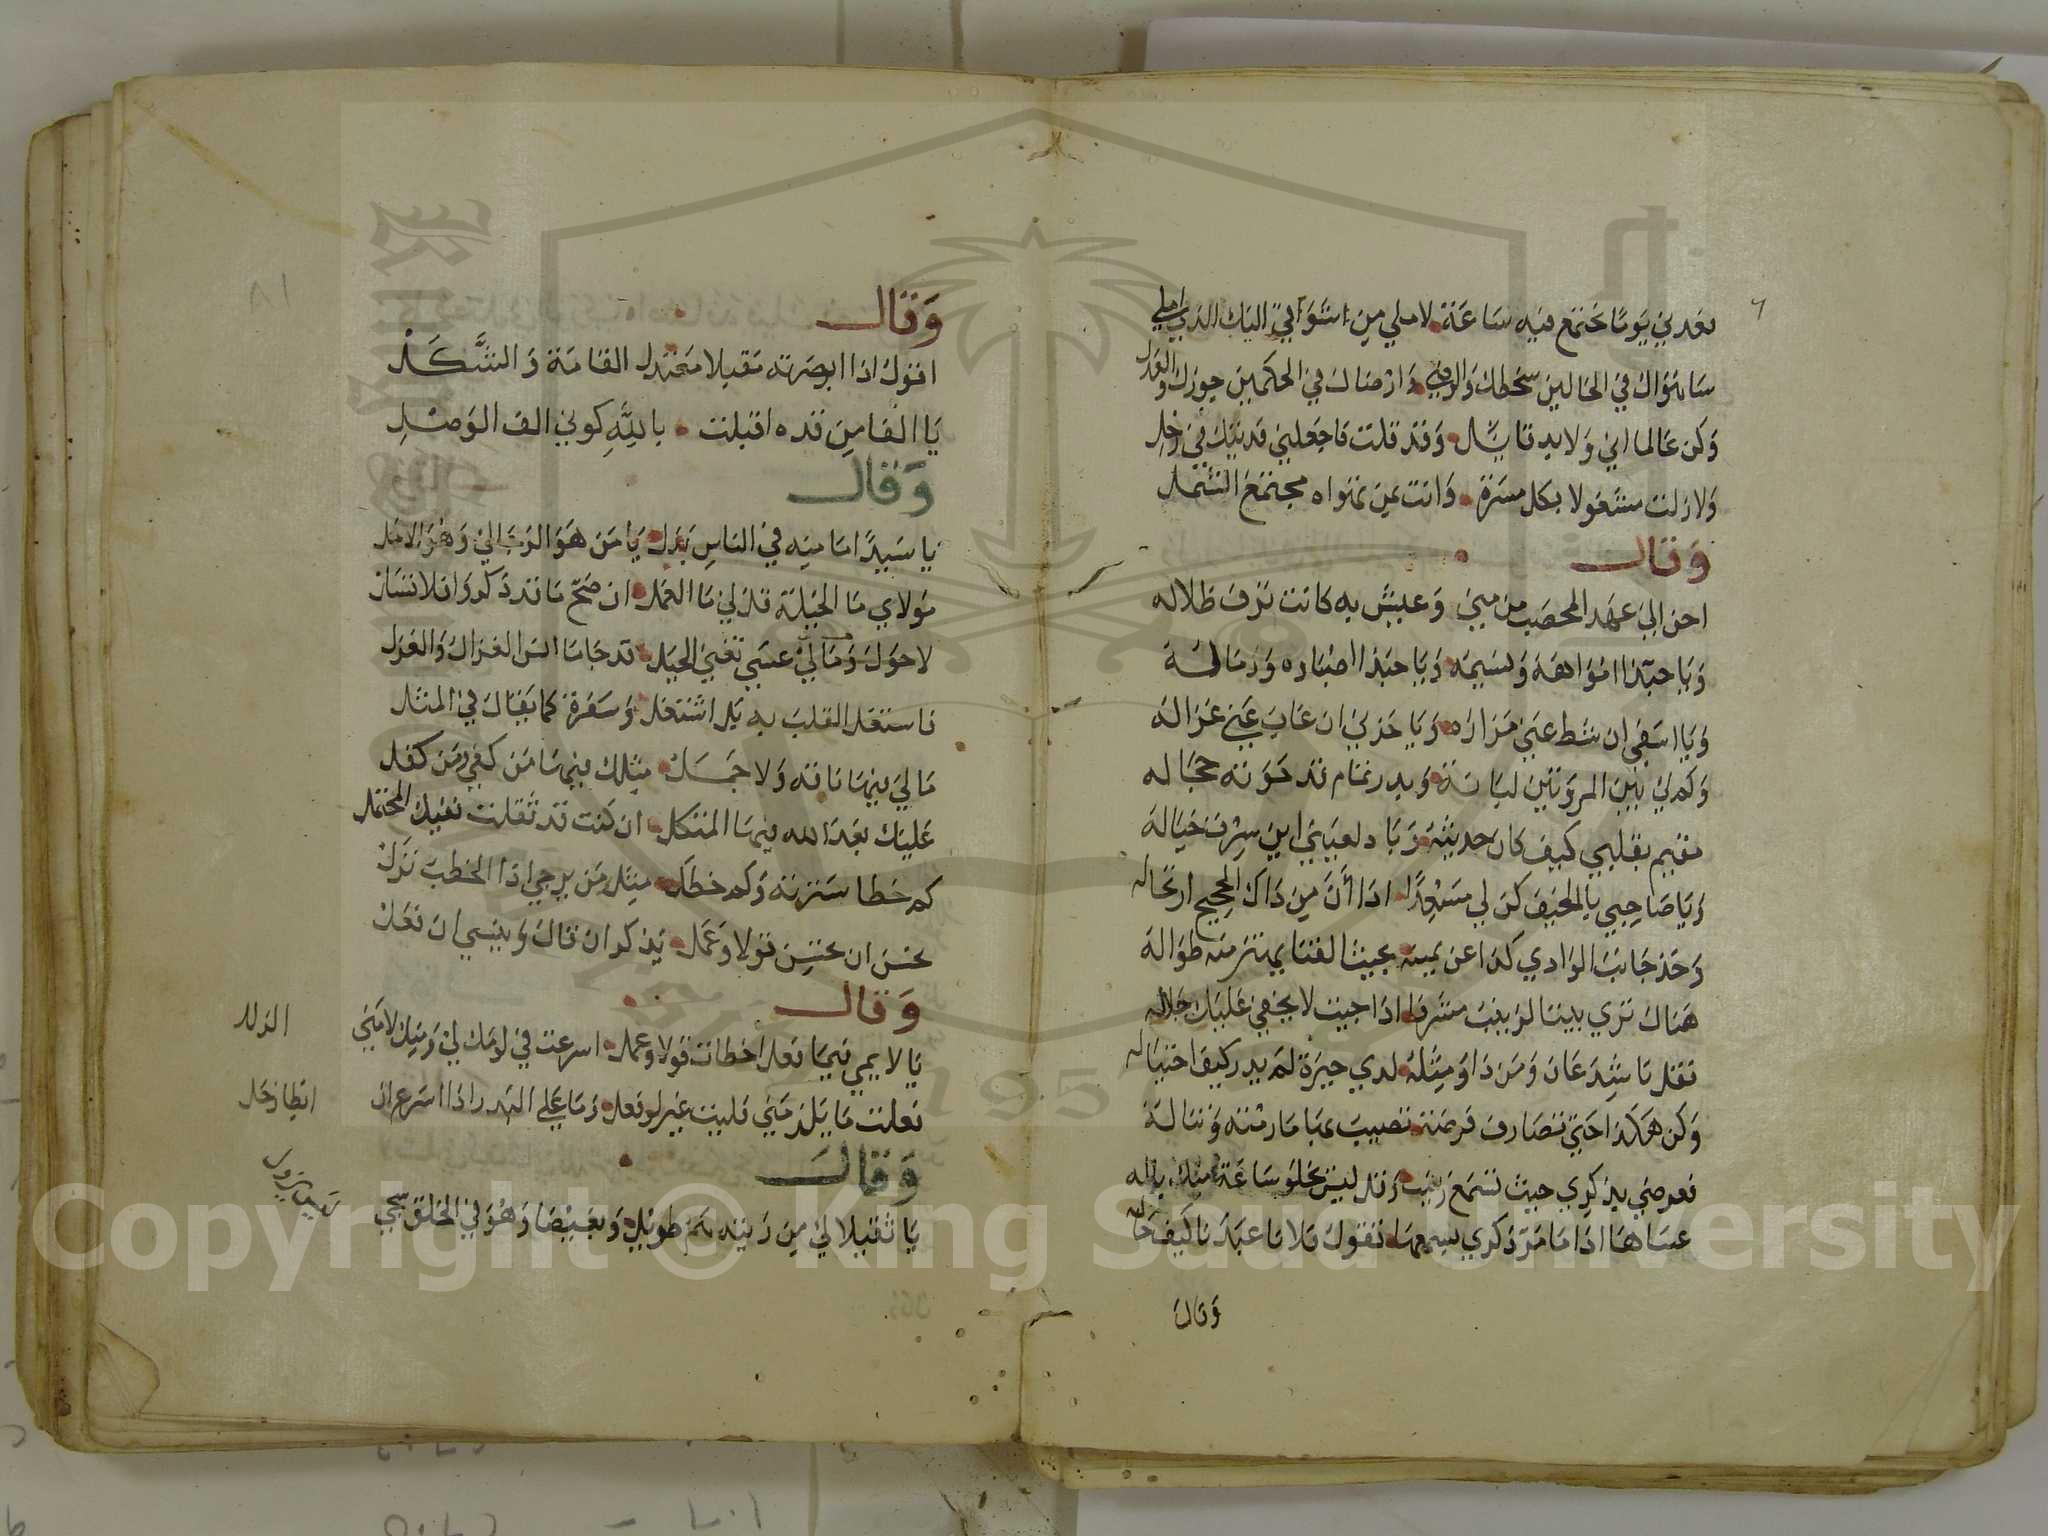 فعديني يوما نجتمع فيه ساعة لاملي من اشواقي اليك الذي املي
ساهواك في الحالين سخطك والرضي وارضاك في الحكمين جورك والعدل
وكن عالما اني ولا بد قايل وقد قلت فاجعلني فديتك في حل
ولا زلت مشغولا بكل مسرة وانت بمن تهواه مجتمع الشمل
وقال
احن الى عهد المحصب من مني وعيش به كانت ترف ظلاله
ويا حبذا امواهه ونسيمه ويا حبذا حصباوه ورماله
ويا اسفي ان شط عني مزاره ويا حزني ان غاب عني غزاله
وكم لي بين المروتين لبانة وبدر تمام قد حوته حجاله
مقيم بقلبي كيف كان حديثه وباد لعيني اين سرت خياله
ويا صاحبي بالخيف كن لي مسعدا اذا آن من ذاك الحجيج ارتحاله
وخذ جانب الوادي كذا عن يمينه بحيث القنا يهتز منه طواله
هناك تري بيتا لزينب مشرقا اذا جيت لا يخفي عليك جلاله
فقل ناشد عان ومن ذا ومثله لدي حيرة لم يدر كيف احتياله
وكن هكذا حتي تصادف فرصة تصيب بها ما رمته وتناله
فعرض بذكري حيث تسمع زينب وقل ليس يخلو ساعة منك باله
عساها اذا ما مر ذكري بسمعها تقول فلانا عبدنا كيف حاله
وقال
٨١
وقال
اقول اذا ابصرته مقبلا معتدل القامة والشكل
يا الفا من قده اقبلت بالله كوني الف الوصل
وقال
يا سيدا ما منه في الناس بدل يا من هو الرجا لي وهو الامل
مولاي ما الحيلة قل لي ما العمل ان صح ما قد ذكروا فلا تسل
لا حول ومالي عسي تغني الحيل قد جانا الغزال والغزل
فاستغل القلب به بل اشتغل وسفرة كما يقال في المثل
مالي فيها ناقه ولا جمل مثلك فيها من كفي ومن كفل
عليك بعد الله فيها المتكل ان كنت قد ثقلت فعليك المحتمل
كم خطا سترته وكم خطل مثل من يرجي اذا الخطب نزل
يحسن ان يحسن قولا وعمل يذكر ان قال وينسي ان فعل
وقال
يا لايمي فيما فعل اخطات قولا وعمل اسرعت في لومك لي ومنك لا مني الزلل
فعلت ما يلزمني فليت غيري لو فعل وما علي البدر اذا اسرع ان ابطا زحل
وقال
يا ثقيلا لي من رويته هم طويل وبغيضا وهو في الخلق شجي ليس يزول
Copyright © King Saud University